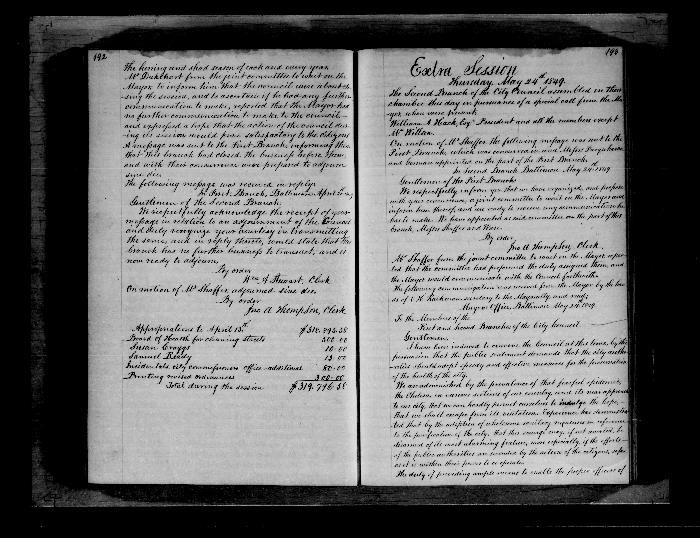 192
The herring and shad season of each and every year
Mr Dukehart from the joint committee to wait on the
Mayor to inform him that the council were about clo-
sing the session, and to ascertain if he had any further
communication to make, reported that the Mayor has
no further communication to make to the council—
and expressed a hope that the action of the council dur-
ing its session would prove satisfactory to the citizens
A message was sent to the First Branch, informing them
that this branch had closed the business before them,
and with their concurrence were prepared to adjourn
sine die.
The following message was received in reply:
In First Branch, Baltimore April
Gentlemen of the Second Branch:
We respectfully acknowledge the receipt of your
message in relation to an adjournment of the Council
and duly recognize your courtesy in transmitting
the same, and in reply thereto, would state that this
branch has no further business to transact, and is
now ready to adjourn,
By order
Wm G Stewart, Clerk
On motion of Mr Shaffer, adjourned sine die.
By order
Jno A Thompson, Clerk
Appropriations to April 13th $318.793.38
Board of Health for cleansing streets 500 00
Susan Craggs 10.00
Samuel Ready 13.00
Incidentals city commissioners office additional 80-00
Printing revised ordinances 300-00
Total during the session $319.796 38
193
Extra Session
Thursday May 24th 1849.
The Second Branch of the City Council assembled in their
chamber this day in pursuance of a special call from the Ma-
yor when were present
William A Hack, Esqr President and all the members except
Mr Willson.
On motion of Mr Shaffer the following message was sent to the
First Branch, which was concurred in and Messrs Farquharson
and appointed on the part of the First Branch.
In Second Branch Baltimore May 24 1849
Gentlemen of the First Branch:
We respectfully inform you that we have organized, and propose
with your concurrence, a joint committee to wait on the Mayor and
inform him thereof and are ready to receive any communication he
has to make. We have appointed as said committee on the part of this
branch, Messrs Shaffer and Ware.
By order,
Jno A Thompson, Clerk.
Mr Shaffer from the joint committee to wait on the Mayor repor-
ted that the committee had performed the duty assigned them, and
the Mayor would communicate with the Council forthwith.
The following communication was received from the Mayor by the han-
ds of secretary to the Mayoralty and read;
Mayor's Office, Baltimore May 24th 1849.
To the Members of the
First and Second Branches of the City Council
Gentlemen.
I have been induced to convene the Council at this time, by the
persuasion that the public sentiment demands that the city autho-
rities should adopt speedy and effective measures for the preservation
of the health of the city.
We are admonished by the prevalence of that fearful epidemic,
the Cholera in various sections of our country, and its near approach
to our city, that we can hardly permit ourselves to indulge the hope,—
that we shall escape from its visitation. Experience has demonstra-
ted that by the adoption of wholesome sanitary regulations in reference
to the purification of the city, that this scourge may, if not averted, be
disarmed of its most alarming feature, more especially, if the efforts—
of the public authorities are seconded by the action of the citizens, so far
as it is within their power to co-operate.
The duty of providing ample means to enable the proper officers of